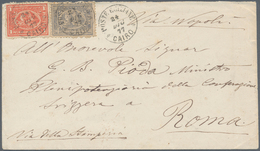 POSTE EGIZIANE
24
77
CAIRO
Via Napoli
All' Onorevole Signor
E. B. Pioda Ministro
Plenipotenziario della Confederazione
Svizzera a
Roma
Via